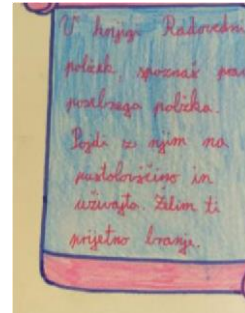 V knjigi Radovedni
polžek, spoznaš
posebnega polžka.
Pojdi z njim na
pustolovščino in
uživajta. Želim ti
prijetno branje.